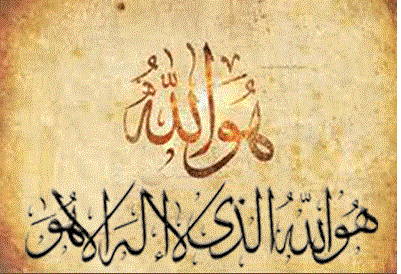 هُوَ اللّٰهُ
هُوَ اللّٰهُ الَّذِى لَا إِلٰهَ إِلَّا هُوَ